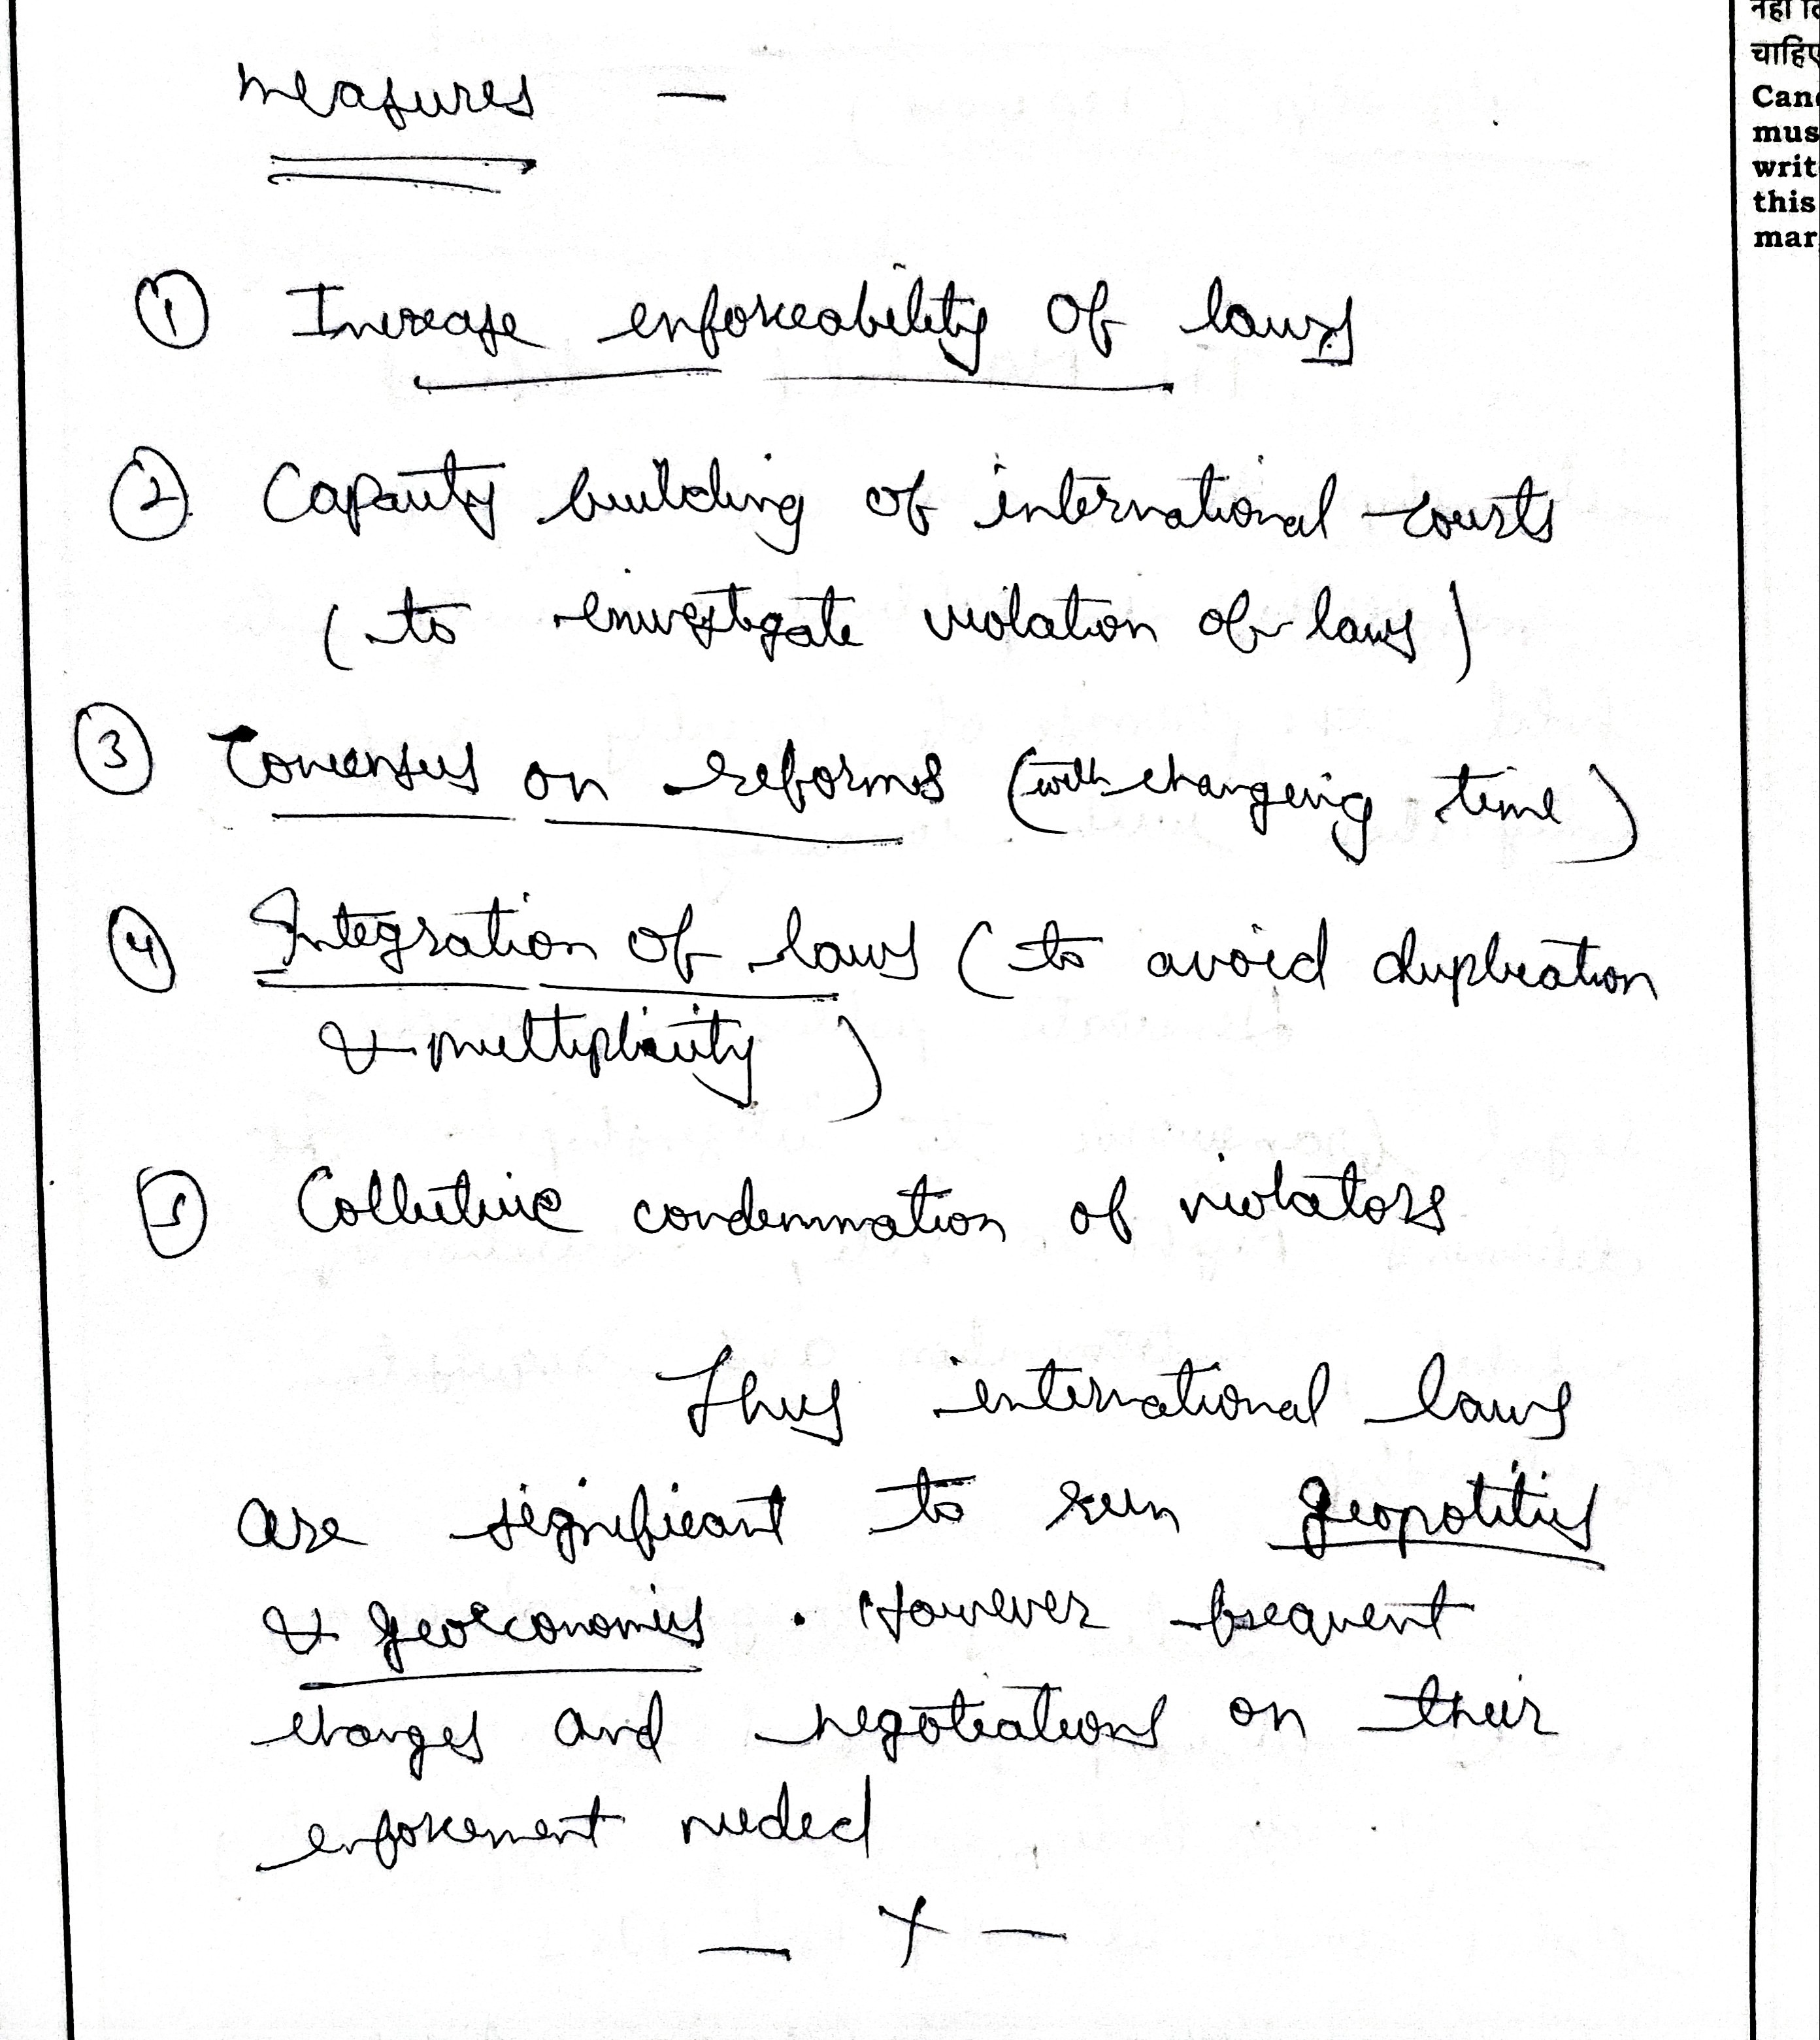 measures —
① Increase enforceability of laws
② Capacity building of international courts
(to investigate violation of laws)
③ Consensus on reforms (with changing time)
④ Integration of laws (to avoid duplication
& multiplicity)
⑤ Collective condemnation of violators
Thus international laws
are significant to run geopolitics
& geoeconomics. However frequent
changes and negotiations on their
enforcement needed
— x —
चाहिए
Can
mus
writ
this
mar